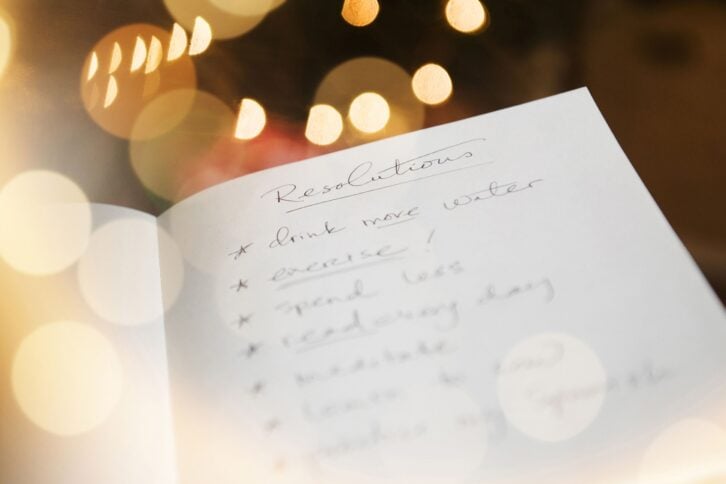 Resolutions
* drink more water
* exercise!
* spend less
* read every day
* meditate
* learn to
* my Spanish